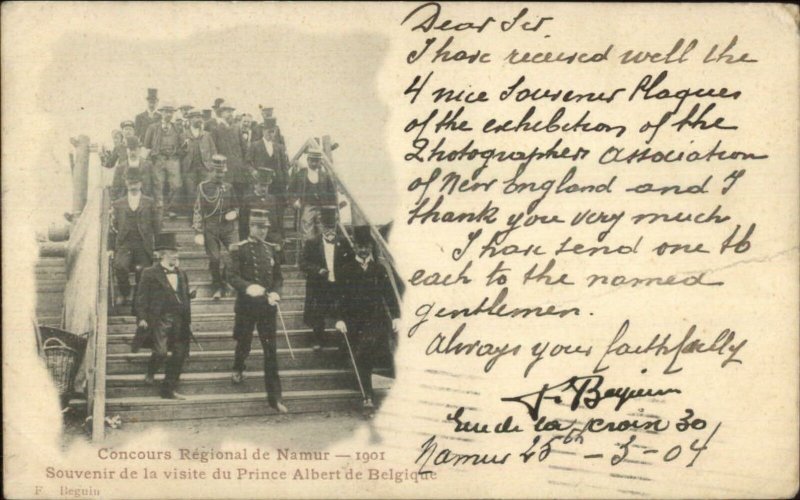 Dear Sir
I have received well the
4 nice Souvener Plaques
of the exhibition of the
Photographers Association
of New England and I
thank you very much
I have send one to
each to the named
gentlemen.
Always your faithfully
F. Beguin
Rue de la croix 30
Namur 25th - 3 - 04
Concours Régional de Namur — 1901
Souvenir de la visite du Prince Albert de Belgique
F. Beguin